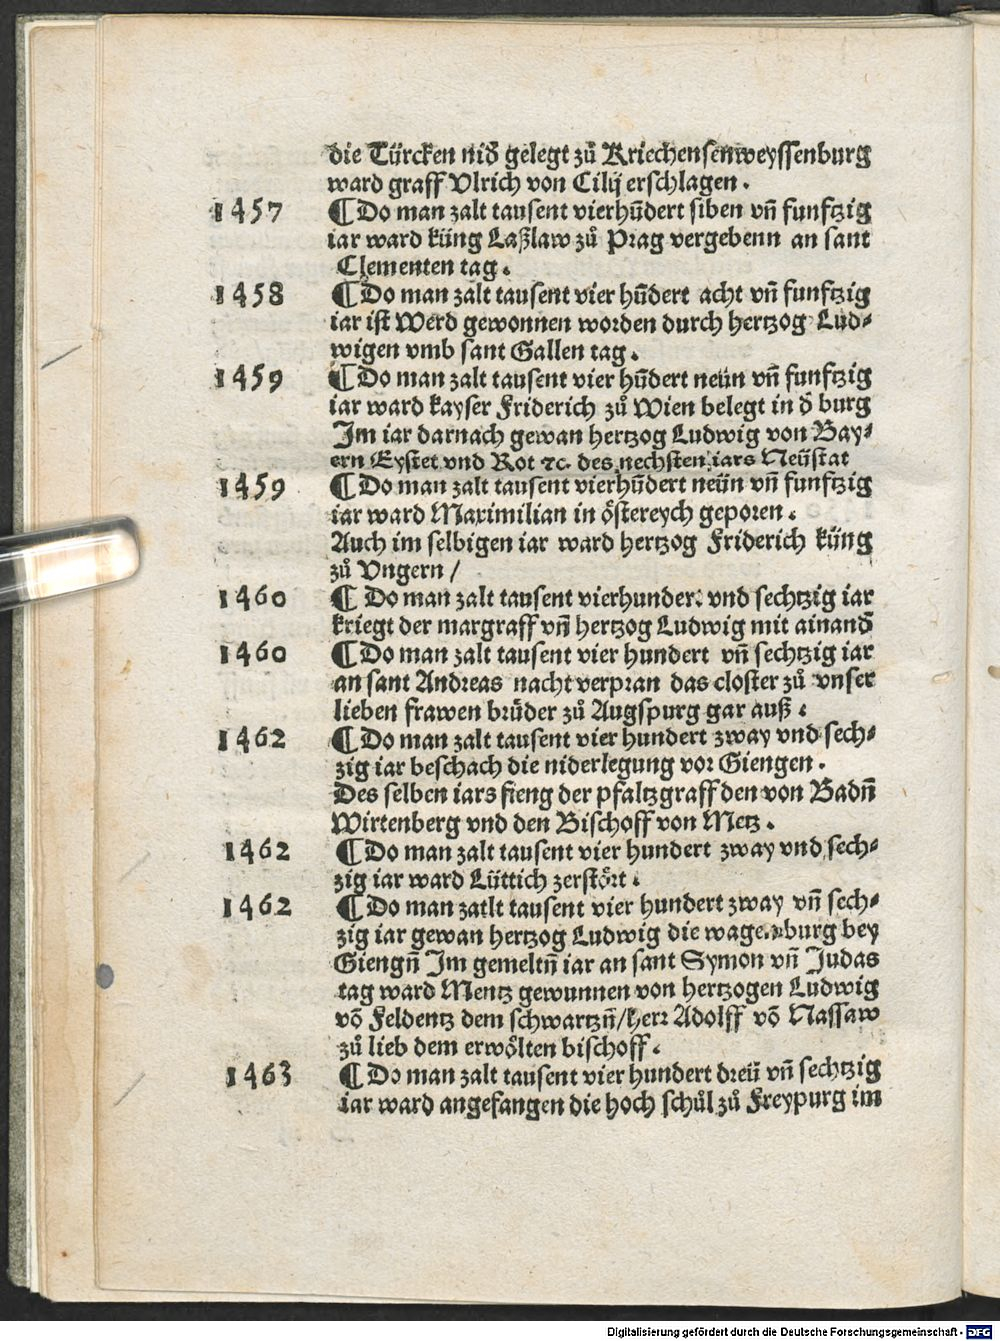 die Türcken nid̄ gelegt zů Kriechensenweyssenburg
ward graff Vlrich von Cilij erschlagen.
1457 ¶Do man zalt tausent vierhūdert siben vn̄ funftzig
iar ward küng Laßlaw zů Prag vergebenn an sant
Clementen tag.
1458 ¶Do man zalt tausent vier hūdert acht vn̄ funftzig
iar ist Werd gewonnen worden durch hertzog Lud⸗
wigen vmb sant Gallen tag.
1459 ¶Do man zalt tausent vier hūdert neün vn̄ funftzig
iar ward kayser Friderich zů Wien belegt in d̄ burg
Im iar darnach gewan hertzog Ludwig von Bay⸗
ern Eystet vnd Rot ⁊c. des nechsten iars Neüstat
1459 ¶Do man zalt tausent vierhūdert neün vn̄ funftzig
iar ward Maximilian in östereych geporen.
Auch im selbigen iar ward hertzog Friderich küng
zů Vngern /
1460 ¶Do man zalt tausent vierhundert vnd sechtzig iar
kriegt der margraff vn̄ hertzog Ludwig mit ainand̄
1460 ¶Do man zalt tausent vier hundert vn̄ sechtzig iar
an sant Andreas nacht verpran das closter zů vnser
lieben frawen brůder zů Augspurg gar auß.
1462 ¶Do man zalt tausent vier hundert zway vnd sech⸗
zig iar beschach die niderlegung vor Giengen.
Des selben iars fieng der pfaltzgraff den von Badn̄
Wirtenberg vnd den Bischoff von Metz.
1462 ¶Do man zalt tausent vier hundert zway vnd sech⸗
zig iar ward Lüttich zerstört.
1462 ¶Do man zatlt tausent vier hundert zway vn̄ sech⸗
zig iar gewan hertzog Ludwig die wagenburg bey
Giengn̄ Im gemeltn̄ iar an sant Symon vn̄ Judas
tag ward Mentz gewunnen von hertzogen Ludwig
vō Feldentz dem schwartzn̄/herr Adolff vō Nassaw
zů lieb dem erwölten bischoff.
1463 ¶Do man zalt tausent vier hundert dreü vn̄ sechtzig
iar ward angefangen die hoch schůl zů Freypurg im
Digitalisierung gefördert durch die Deutsche Forschungsgemeinschaft - DFG